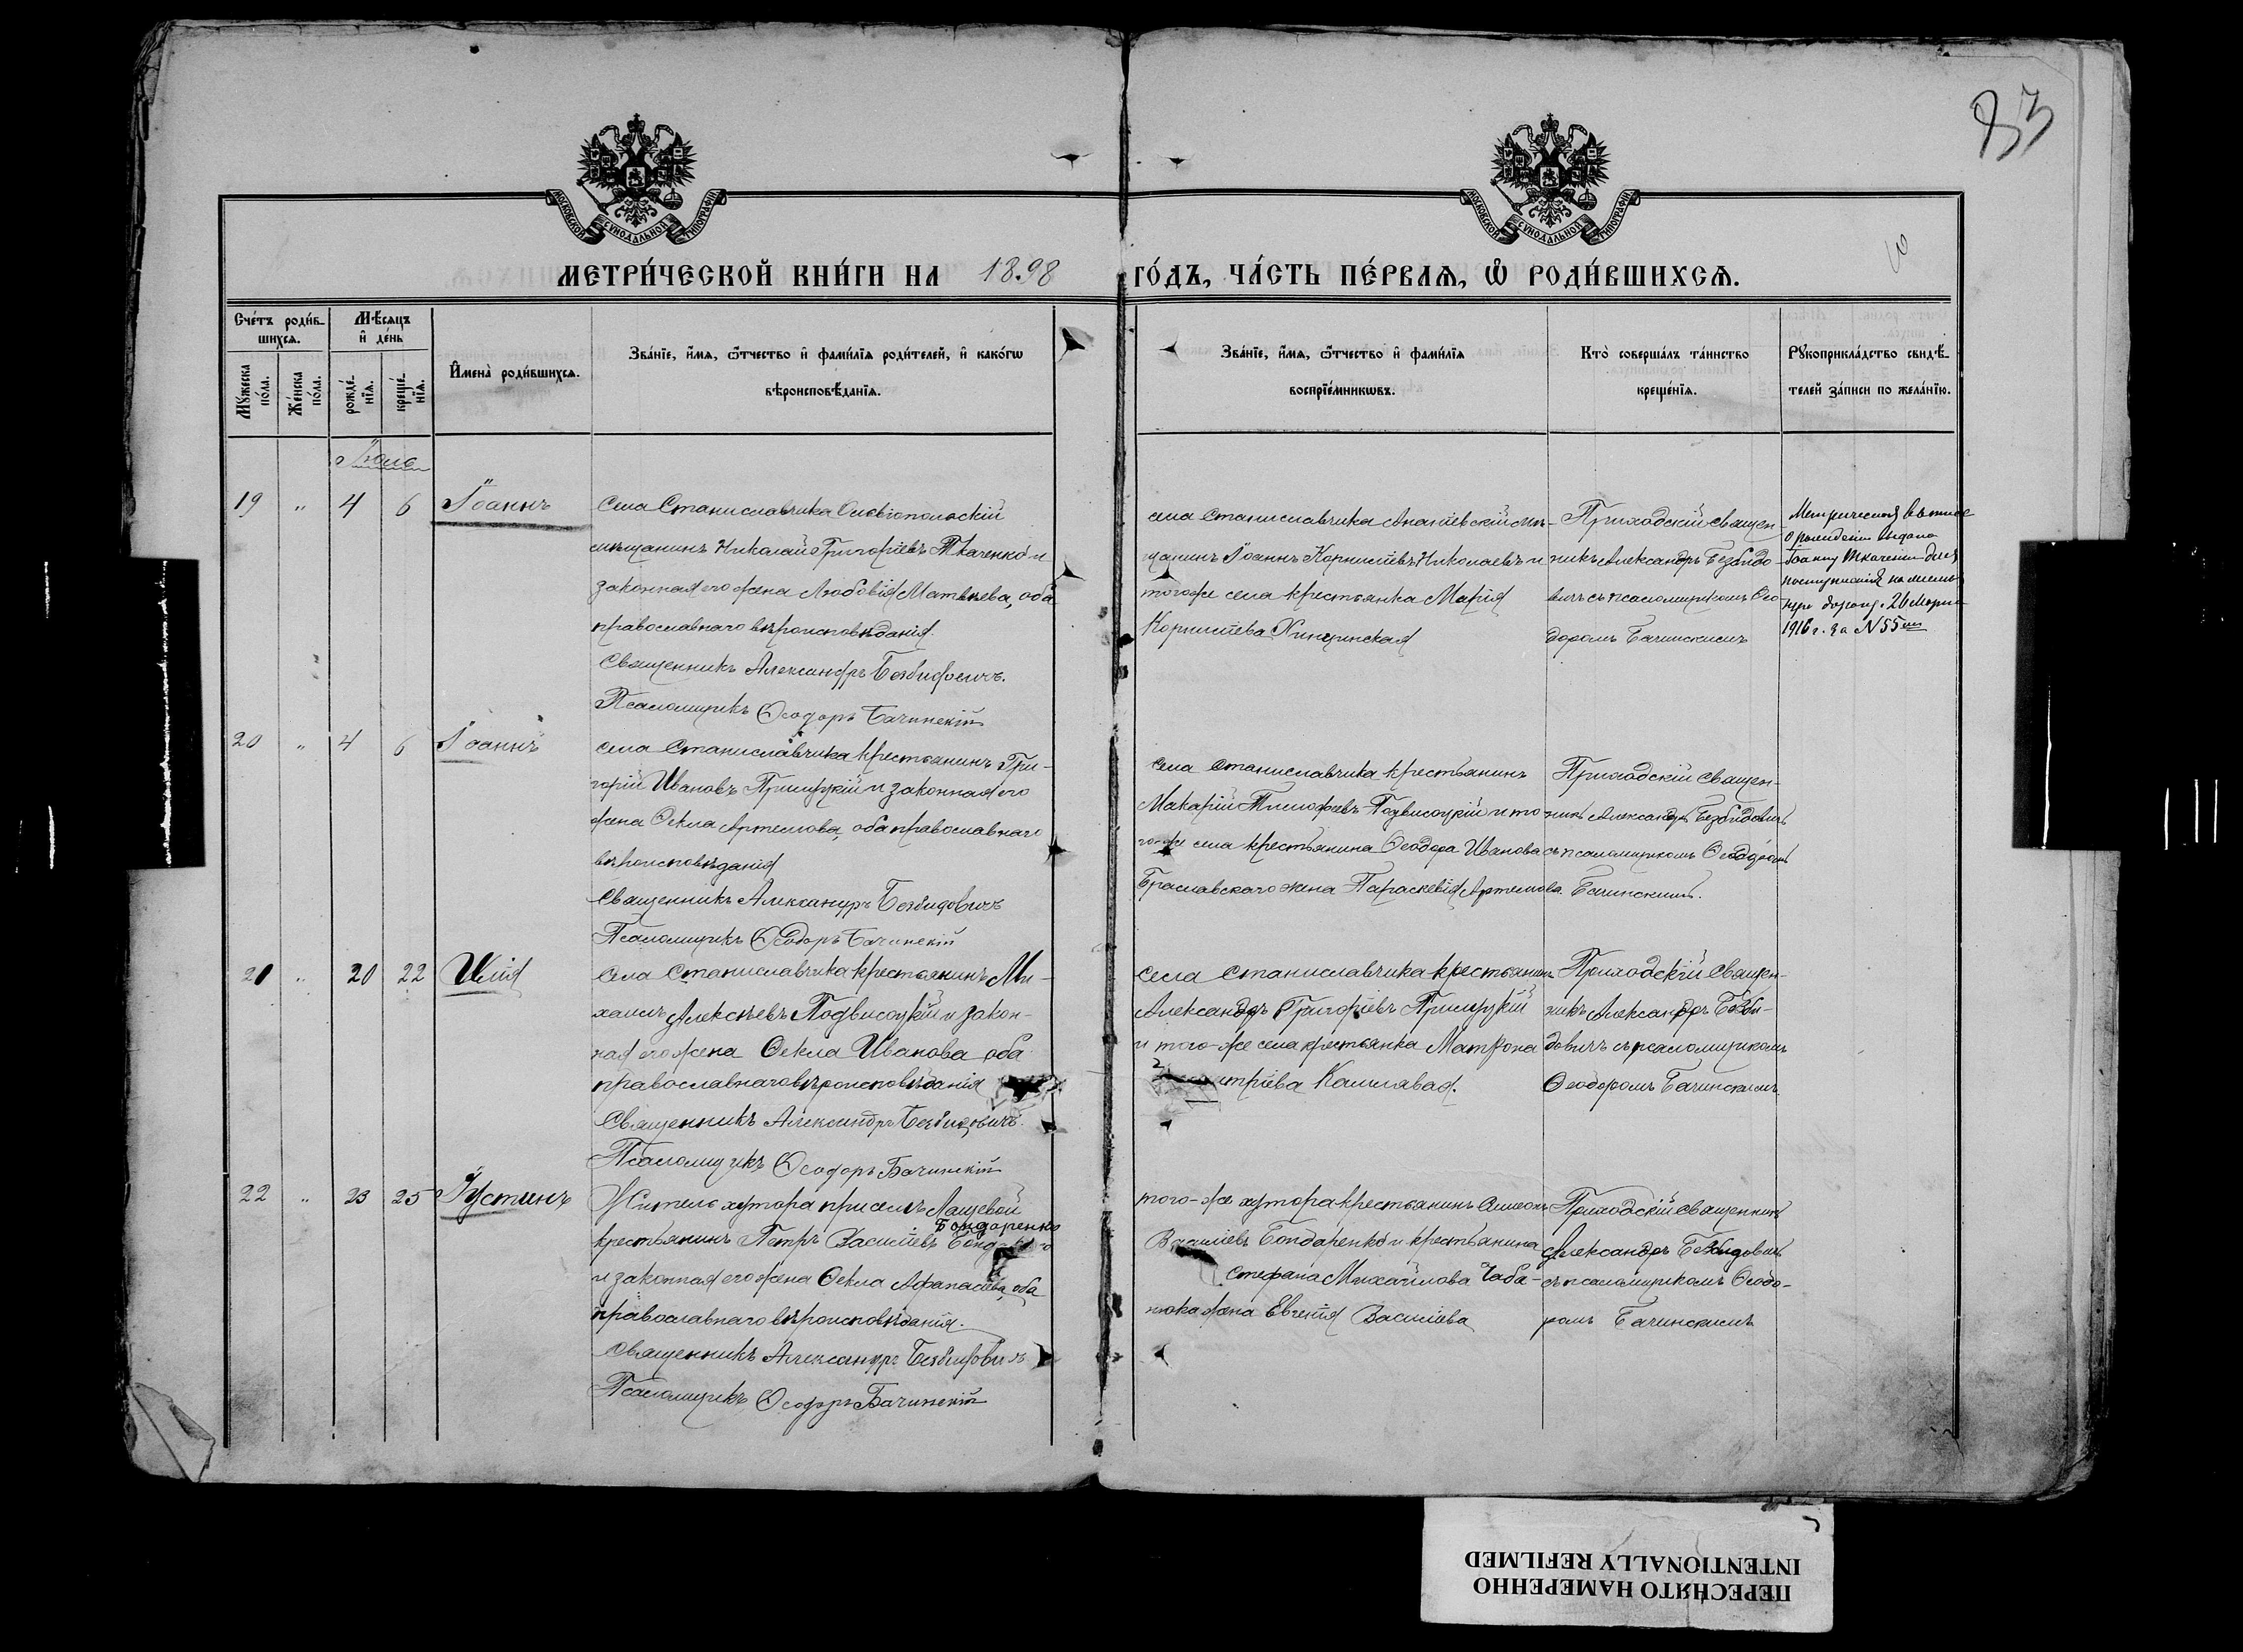 83
МОСКОВСКОЙ СУНОДАЛЬНОЙ ТИПОГРАФІИ
МОСКОВСКОЙ СУНОДАЛЬНОЙ ТИПОГРАФІИ
МЕТРИ́ЧЕСКОЙ КНИ́ГИ НА 1898 ГО́ДЪ, ЧА́СТЬ ПЕ́РВАѦ, Ѡ҆ РОДИ́ВШИХСѦ.
Сче́тъ роди́в-
шихсѧ.
Мꙋ́жеска
по́ла.
Же́нска
по́ла.
Мѣ́сѧцъ
и҆ де́нь
рожде́-
нїѧ.
креще́-
нїѧ.
И҆мена̀ роди́вшихсѧ.
Зва́нїе, и҆́мѧ, ѻ҆́тчество и҆ фами́лїѧ роди́телей, и҆ како́гѡ
вѣроисповѣ́данїѧ.
Зва́нїе, и҆́мѧ, ѻ҆́тчество и҆ фами́лїѧ
воспрїе́мникѡвъ.
Кто̀ соверша́лъ та́инство
креще́нїѧ.
Рꙋкоприкла́дство свидѣ́-
телей за́писи по жела́нїю.
19 " 4 6 Іоаннъ
Села Станиславчика Ольвіопольскій
мѣщанинъ Николай Григоріевъ Ткаченко и
законная его жена Любовія Матвѣева, оба
православнаго вѣроисповѣданія.
Священникъ Александръ Безбидовичъ.
Псаломщикъ Ѳеодоръ Бачинскій
села Станиславчика Ананіевскій мѣ-
щанинъ Іоаннъ Корниліевъ Николаевъ и
того же села крестьянка Марія
Корниліева
Приходскій священ-
никъ Александръ Безбидо-
вичъ съ псаломщикомъ Ѳео-
доромъ Бачинскимъ
Метрическая выпись
о рожденіи выдана
Іоанну Ткаченко для
поступленія на
дорогу. 26 Марта
1916 г. за N 55
20 " 4 6 Іоаннъ
села Станиславчика крестьянинъ Гри-
горій Ивановъ Прилуцкій и законная его
жена Ѳекла Артемова, оба православнаго
вѣроисповѣданія
Священникъ Александръ Безбидовичъ
Псаломщикъ Ѳеодоръ Бачинскій
села Станиславчика крестьянинъ
Макарій Тимофеевъ Подвисоцкій и то-
го-же села крестьянина Ѳеодора Иванова
Браславскаго жена Параскевія Артемова.
Приходскій священ-
никъ Александръ Безбидовичъ
съ псаломщикомъ Ѳеодоромъ
Бачинскимъ.
21 " 20 22 Илія
Села Станиславчика крестьянинъ Ми-
хаилъ Алексѣевъ Подвисоцкій и закон-
ная его жена Ѳекла Иванова оба
православнаго вѣроисповѣданія
Священникъ Александръ Безбидовичъ.
Псаломщикъ Ѳеодоръ Бачинскій
села Станиславчика крестьянинъ
Александръ Григоріевъ Прилуцкій
и того-же села крестьянка Матрона
Приходскій священ-
никъ Александръ Безби-
довичъ съ псаломщикомъ
Ѳеодоромъ Бачинскимъ.
22 " 23 25 Іустинъ
Житель хутора при селѣ Лащевой
Бондаренко
крестьянинъ Петръ Василіевъ
и законная его жена Ѳекла Афанасіева, оба
православнаго вѣроисповѣданія.
Священникъ Александръ Безбидовичъ
Псаломщикъ Ѳеодоръ Бачинскій
того-же хутора крестьянинъ Симеонъ
Василіевъ Бондаренко и крестьянина
Стефана Михайлова Чаба-
нюка жена Евгенія Василіева
Приходскій священникъ
Александръ Безбидовичъ
съ псаломщикомъ Ѳеодо-
ромъ Бачинскимъ
ПЕРЕСНЯТО НАМЕРЕННО
INTENTIONALLY REFILMED